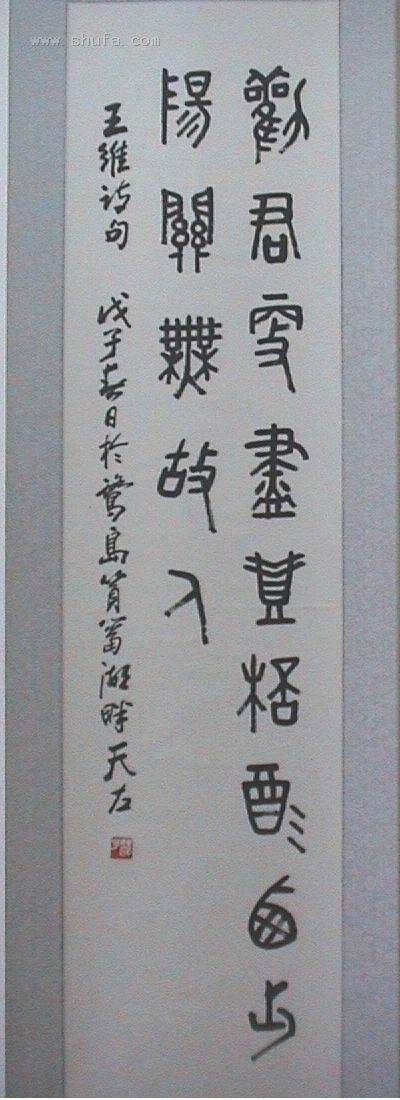 www.shufa.com
勸君更盡壹桮酒西出
陽關無故人
王維詩句 戊子春日於鷺島篔簹湖畔天左